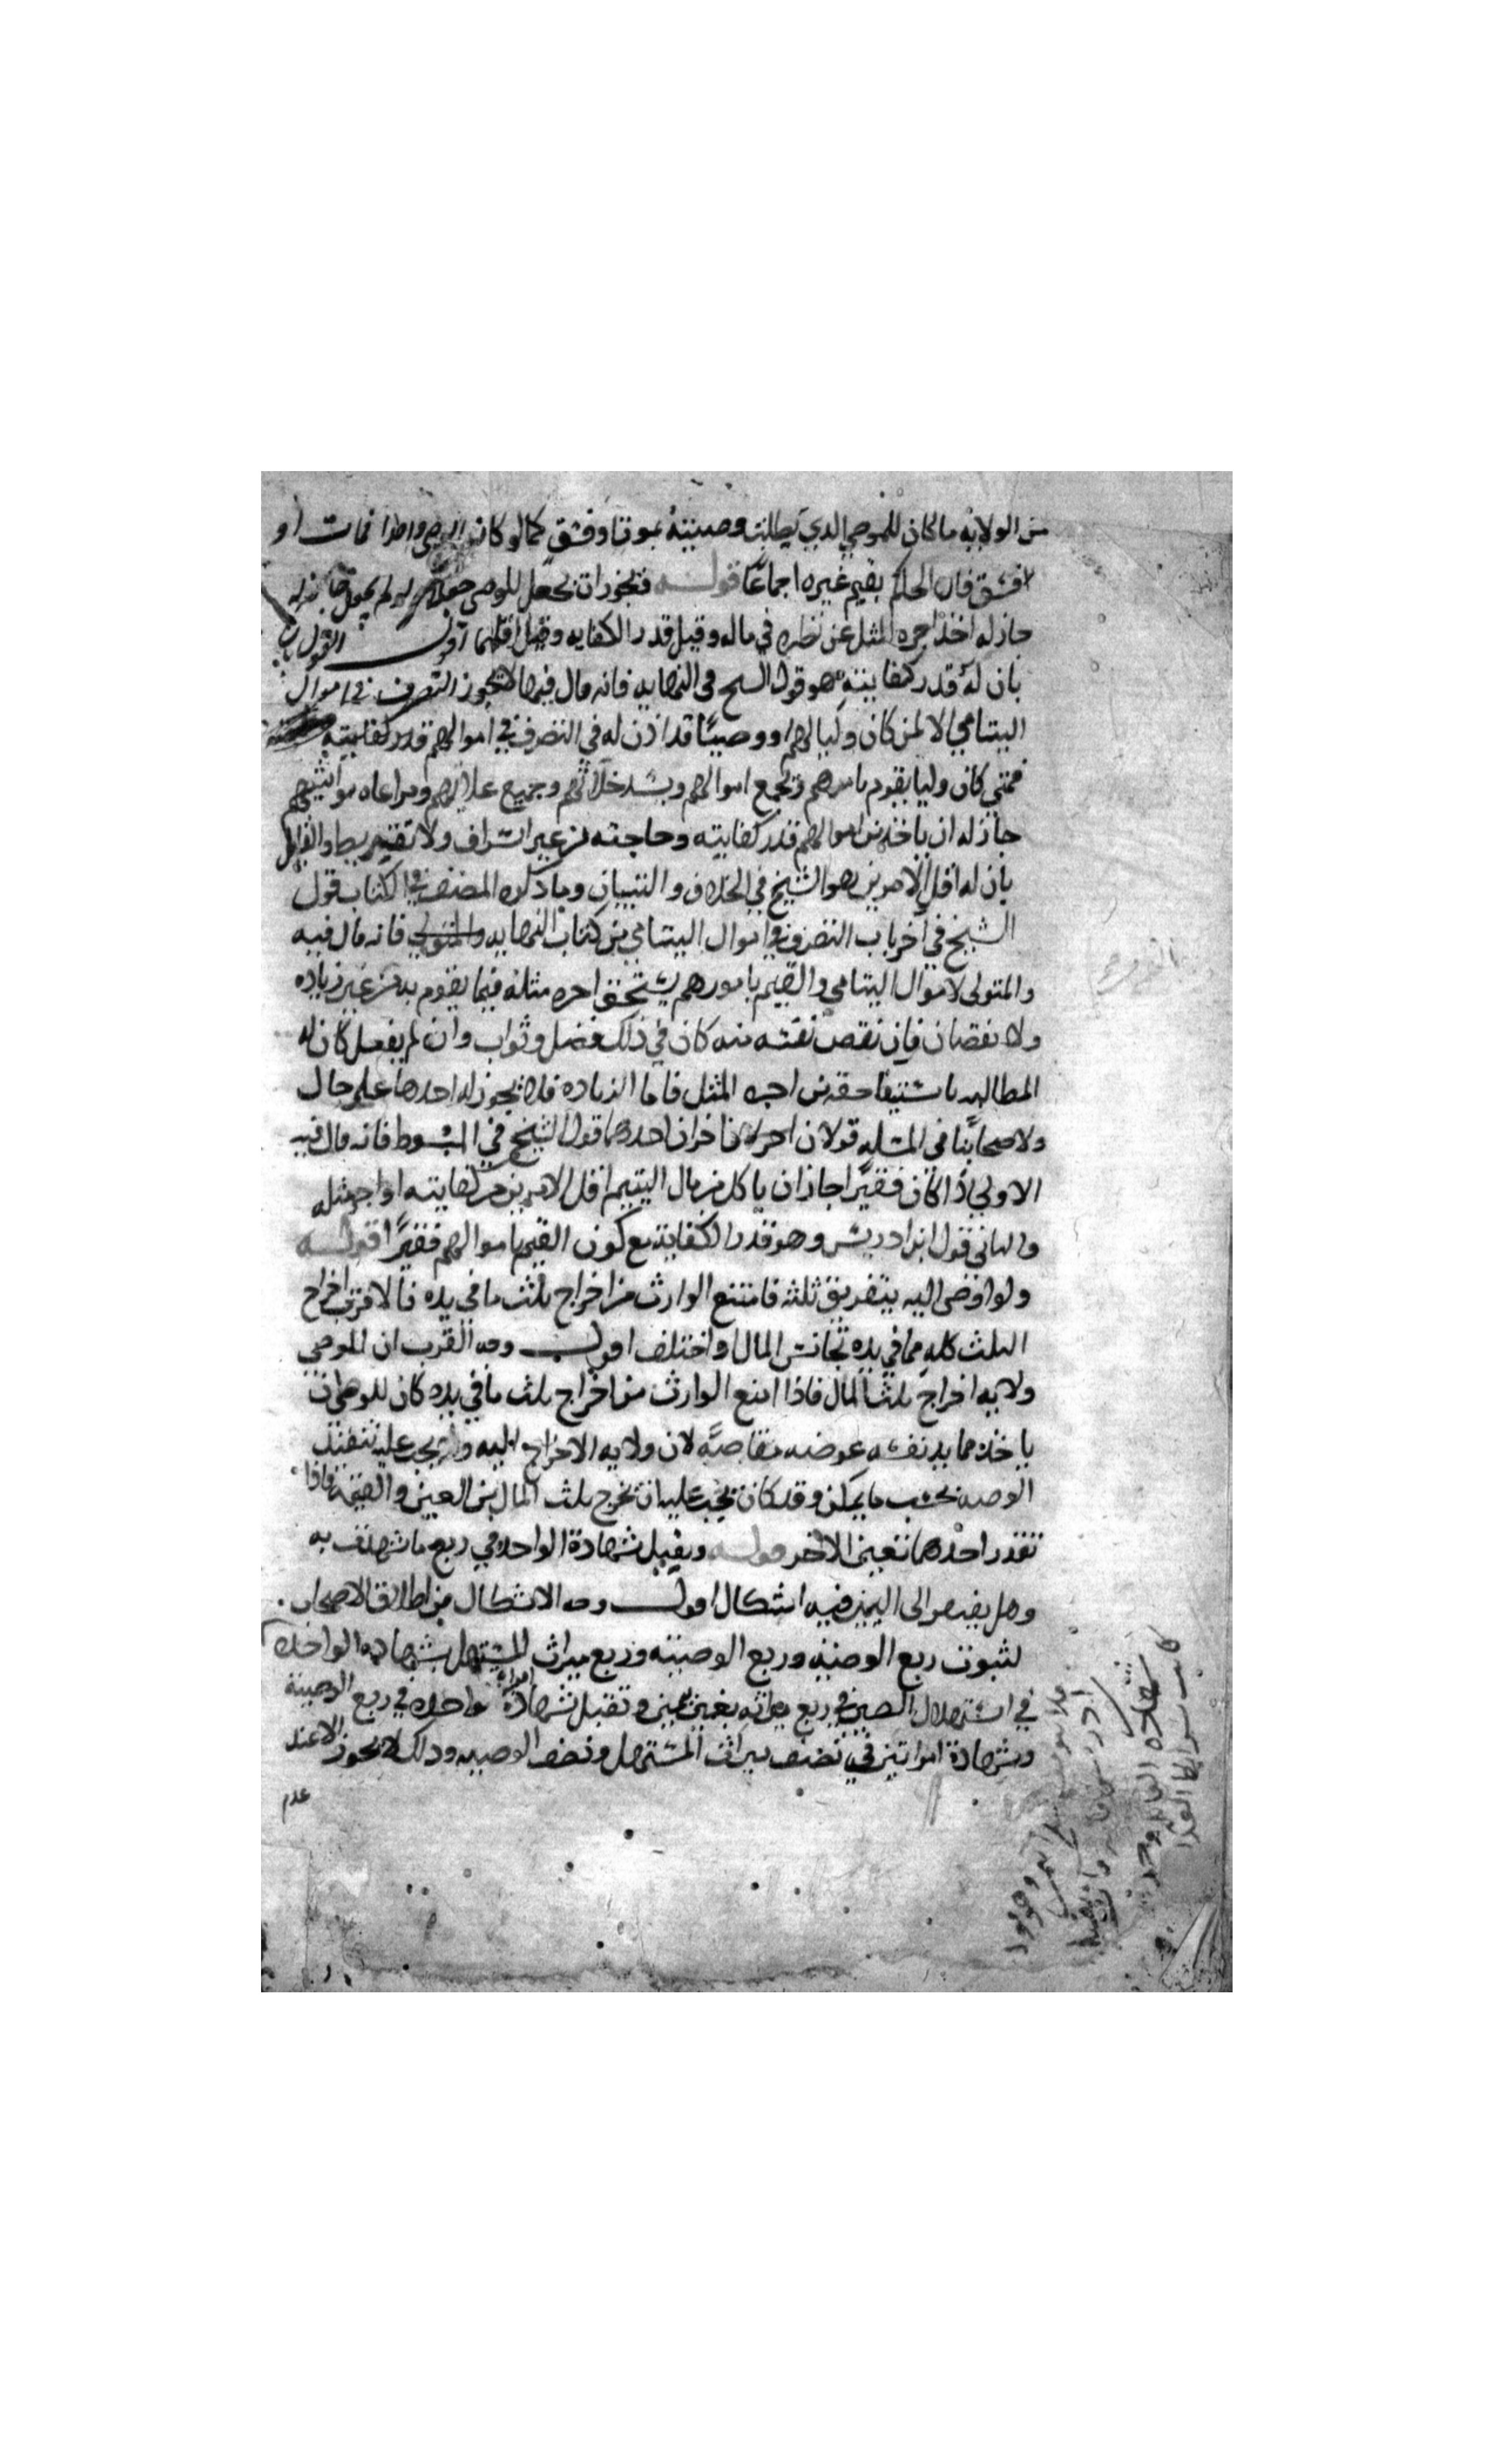 من الولاية ما كان للموصي الذي بطلت وصيته بموت او فسق كما لو كان الوصي واحدا فمات او
فسق فان الحاكم يقيم غيره اجماعا قوله فيجوز ان يجعل للوصي جعلا ولو لم يجعل
جاز له اخذ اجره المثل عن نظره في ماله وقيل قدر الكفايه وقيل اقلهما اقول القول
بان له قدر كفايته هو قول الشيخ في النهايه فانه قال فيها لا يجوز التصرف في اموال
اليتامي الا لمن كان وليا لهم او وصيا قد اذن له في التصرف في اموالهم قدر كفايته
فمتي كان وليا يقوم بامرهم ويجمع اموالهم ويسد خلاتهم وجميع غلاتهم ومراعاه مواشيهم
جاز له ان ياخذ من اموالهم قدر كفايته وحاجته من غير اسراف ولا تفريط والقايل
بان له اقل الامرين هو الشيخ في الخلاف والتبيان وما ذكره المصنف في الكتاب قول
الشيخ في اخر باب التصرف في اموال اليتامي من كتاب النهايه والمتولي فانه قال فيه
والمتولى لاموال اليتامي والقيم بامورهم يستحق اجره مثله فيما يقوم به من غير زياده
ولا نقصان فان نقص نفسه منه كان في ذلك فضل وثواب وان لم يفعل كان له
المطالبه باستيفا حقه من اجره المثل فاما الزياده فلا يجوز له اخذها علي حال
ولاصحابنا في المسله قولان اخران احدهما قول الشيخ في المبسوط فانه قال فيه
الاولي اذا كان فقيرا جاز ان ياكل من مال اليتيم اقل الامرين من كفايته او اجره مثله
والثاني قول ابن ادريس وهو قدر الكفاية مع كون القيم باموالهم فقيرا قوله
ولو اوصى اليه بتفريق ثلثه فامتنع الوارث من اخراج ثلث ما في يده فالاقرب اخراج
الثلث كله مما في يده تجانس المال او اختلف اقول وجه القرب ان للموصي
ولايه اخراج ثلث المال فاذا امتنع الوارث من اخراج ثلث ما في يده كان للوصي ان
ياخذ مما بيد نفسه عوضه مقاصة لان ولايه الاخراج اليه ولانه يجب عليه تنفيذ
الوصيه بحسب ما يمكن وقد كان يجب عليه ان يخرج ثلث المال من العين والقيمه فاذا
تعذر احدهما تعين الاخر قوله ويقبل شهادة الواحده في ربع ما شهدت به
وهل يفتقر الى اليمين فيه اشكال اقول وجه الاشكال من اطلاق الاصحاب
لثبوت ربع الوصيه وربع الوصيته وربع ميراث المستهل بشهاده الواحده
في استهلال الصبي في ربع ميراثه بغير يمين وتقبل شهادة امراة واحده في ربع الوصية
وشهادة امراتين في نصف ميراث المستهل ونصف الوصيه وذلك لا يجوز الا عند
عدم